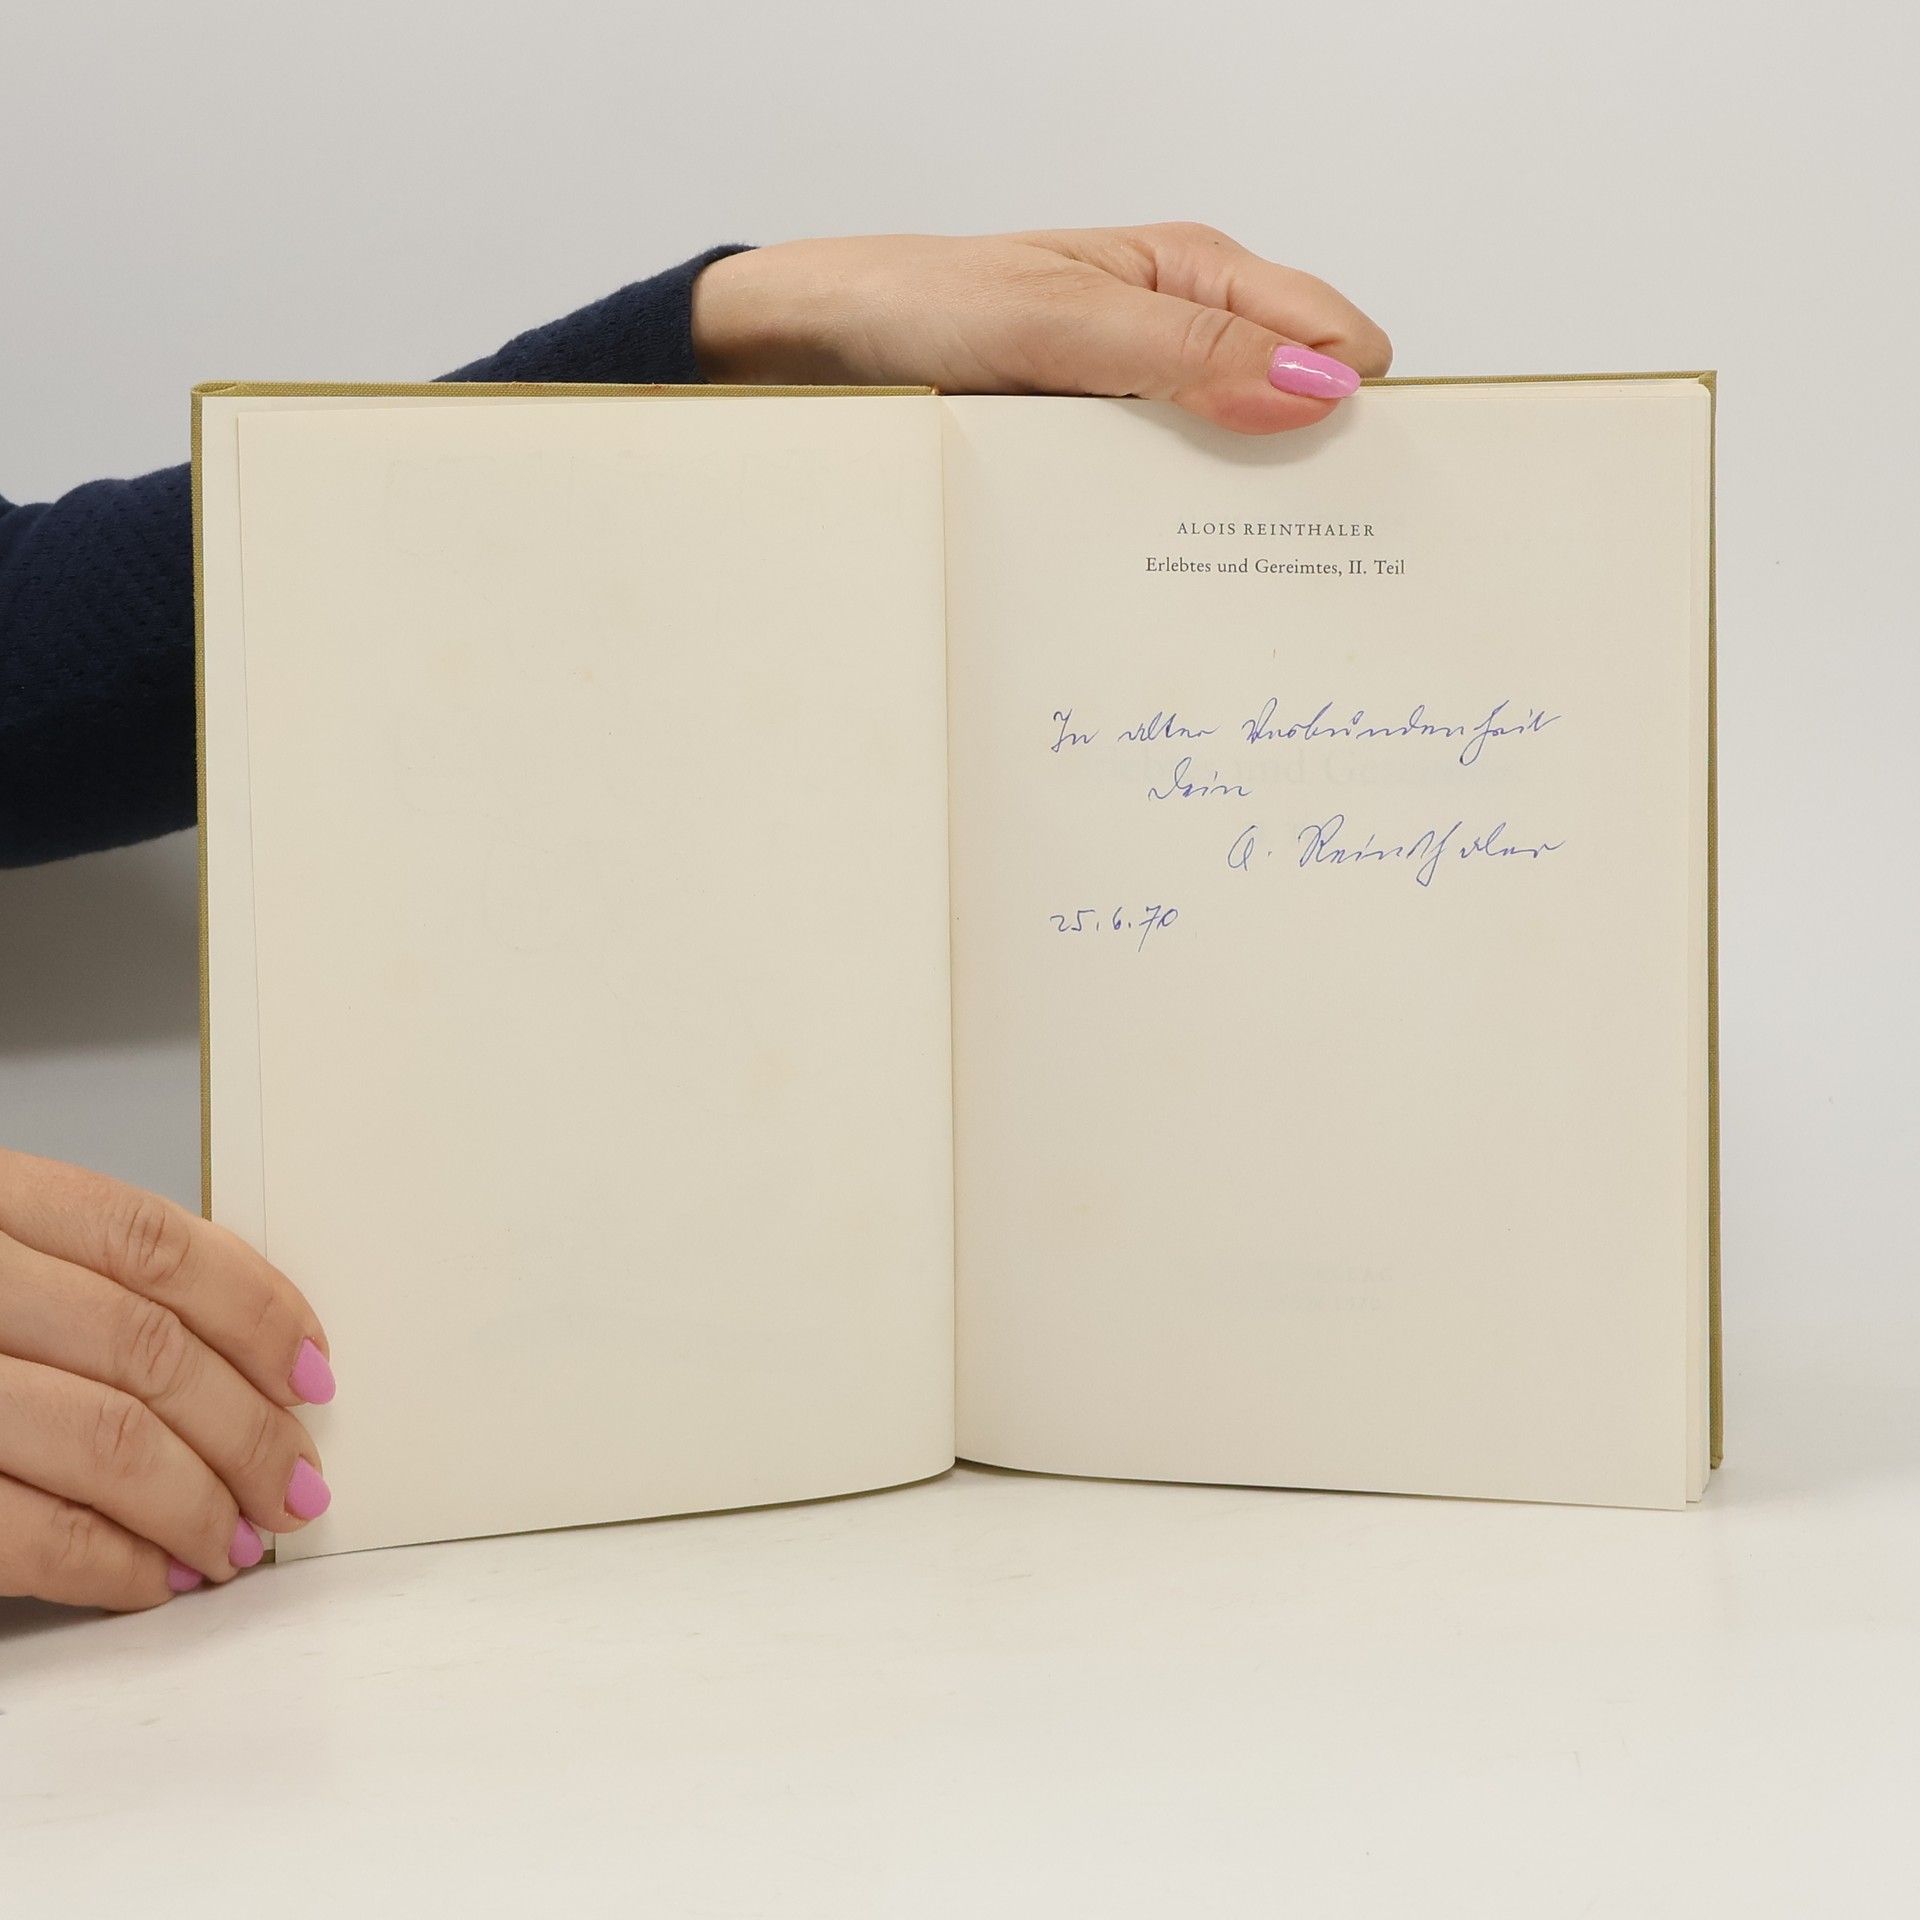 ALOIS REINTHALER
Erlebtes und Gereimtes, II. Teil
In alter Verbundenheit
Dein
A. Reinthaler
25.6.70